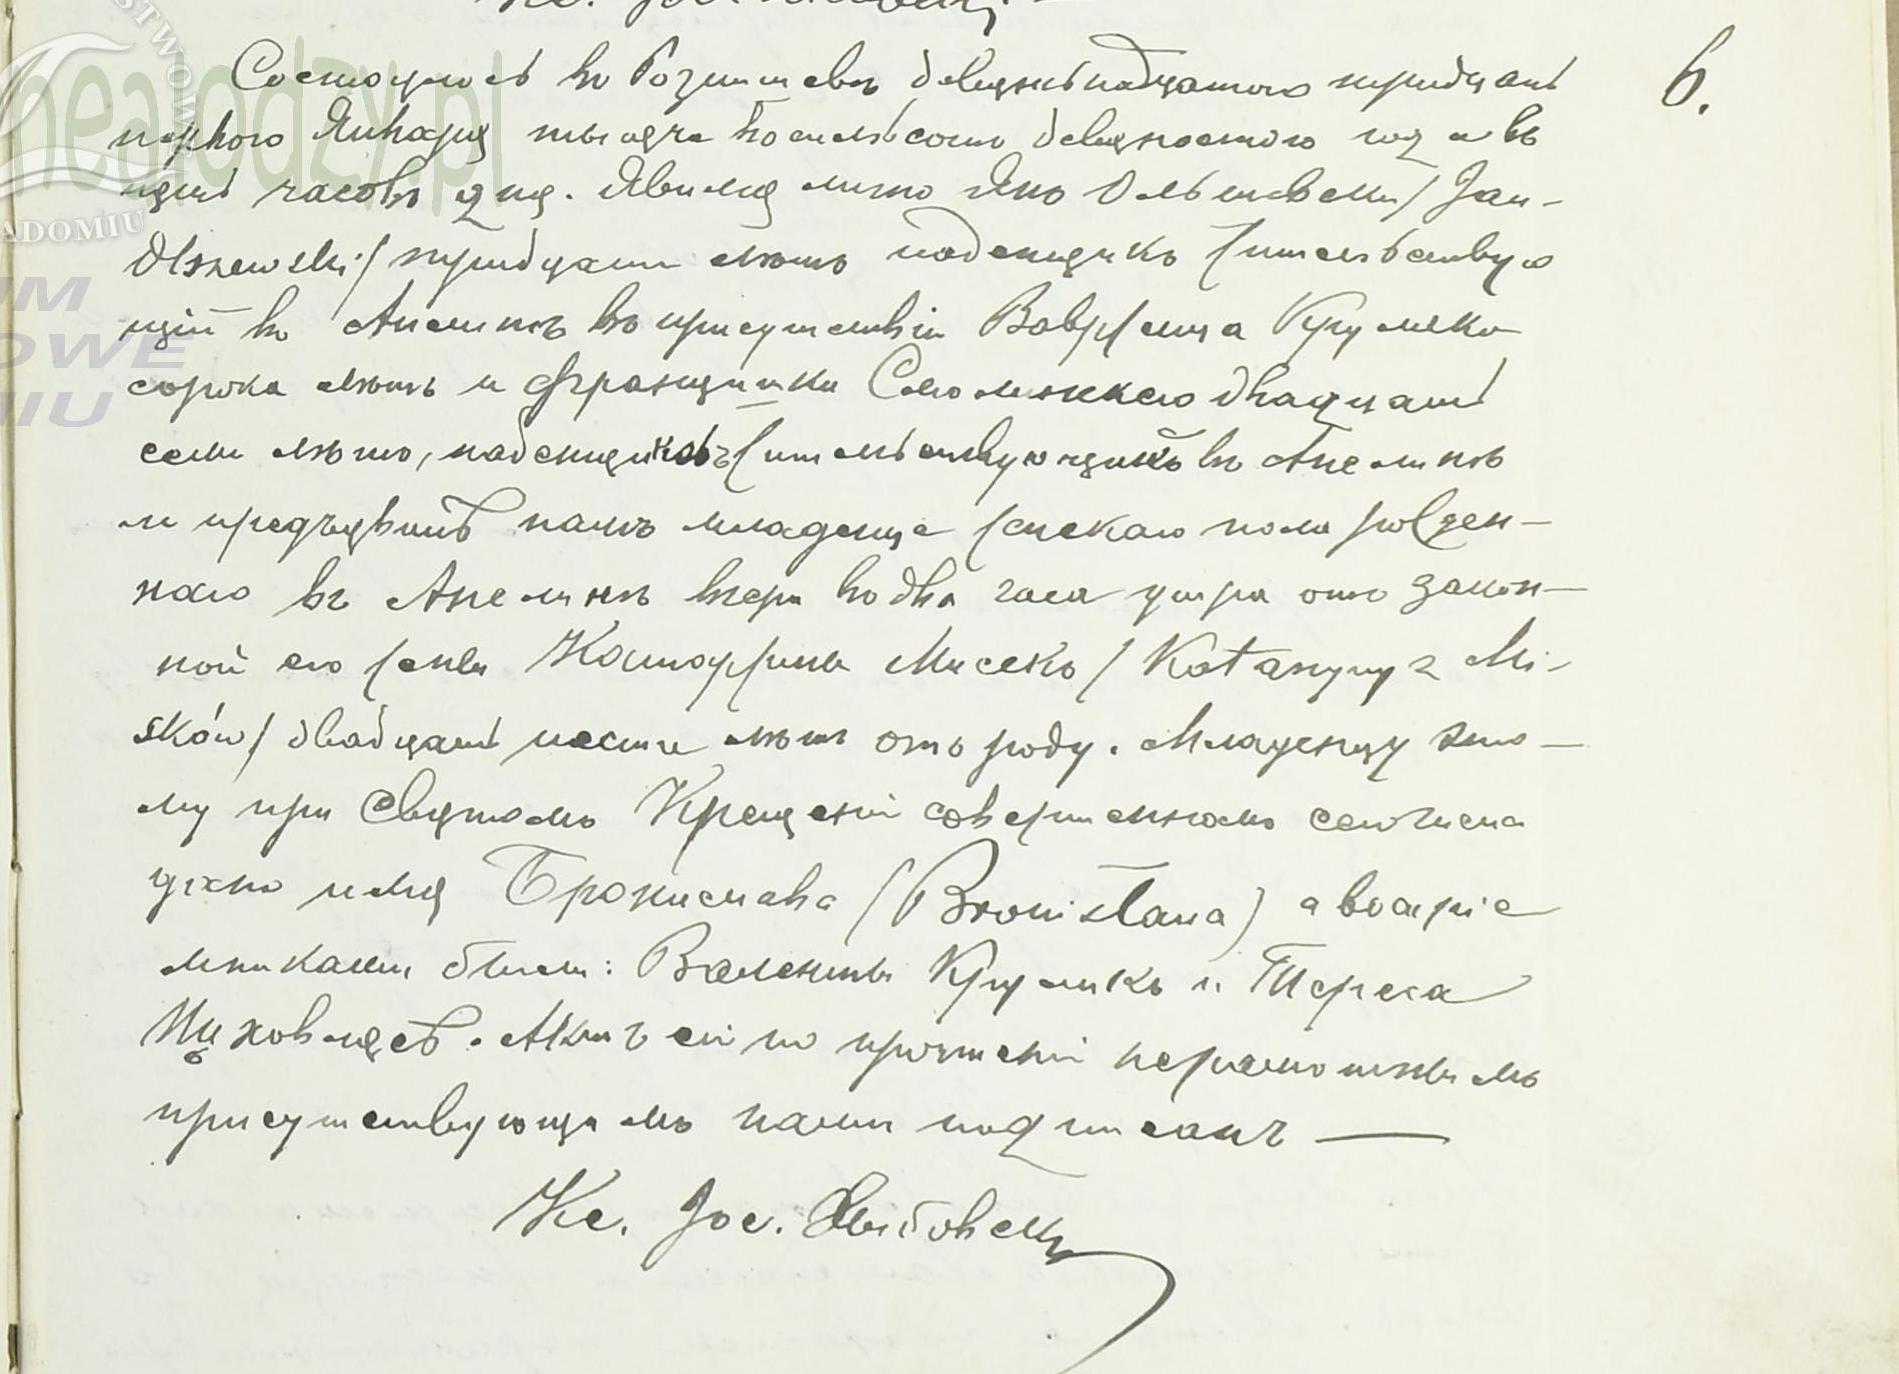 6.
Состоялось въ Розништевѣ девятнадцатого тридцать
перваго Января тысяча восемьсотъ девяностого года въ
пять часовъ дня. Явился лично Янъ Ольшевски /Jan
Olszewski/ тридцати лѣтъ поденщикъ жительствую
щій въ Анелинѣ въ присутствіи Вавржеица Крулика
сорока лѣтъ и Францишка двадцать
семи лѣтъ, поденщиковъ жительствующихъ въ Анелинѣ
и предъявилъ намъ младенца женскаго пола рожден-
наго въ Анелинѣ вчера въ два часа утра отъ закон-
ной его жены Катаржины Мисекъ /Katarzyny z Mi-
sków/ двадцать шести лѣтъ отъ роду. Младенцу это-
му при Святомъ Крещеніи совершенномъ сего числа
дано имя Брониславa (Bronisława) а воспріе
мниками были: Валенты Круликъ и Тереса
Актъ сей по прочтеніи неграмотнымъ
присутствующимъ нами подписанъ —
Кс. Іос.